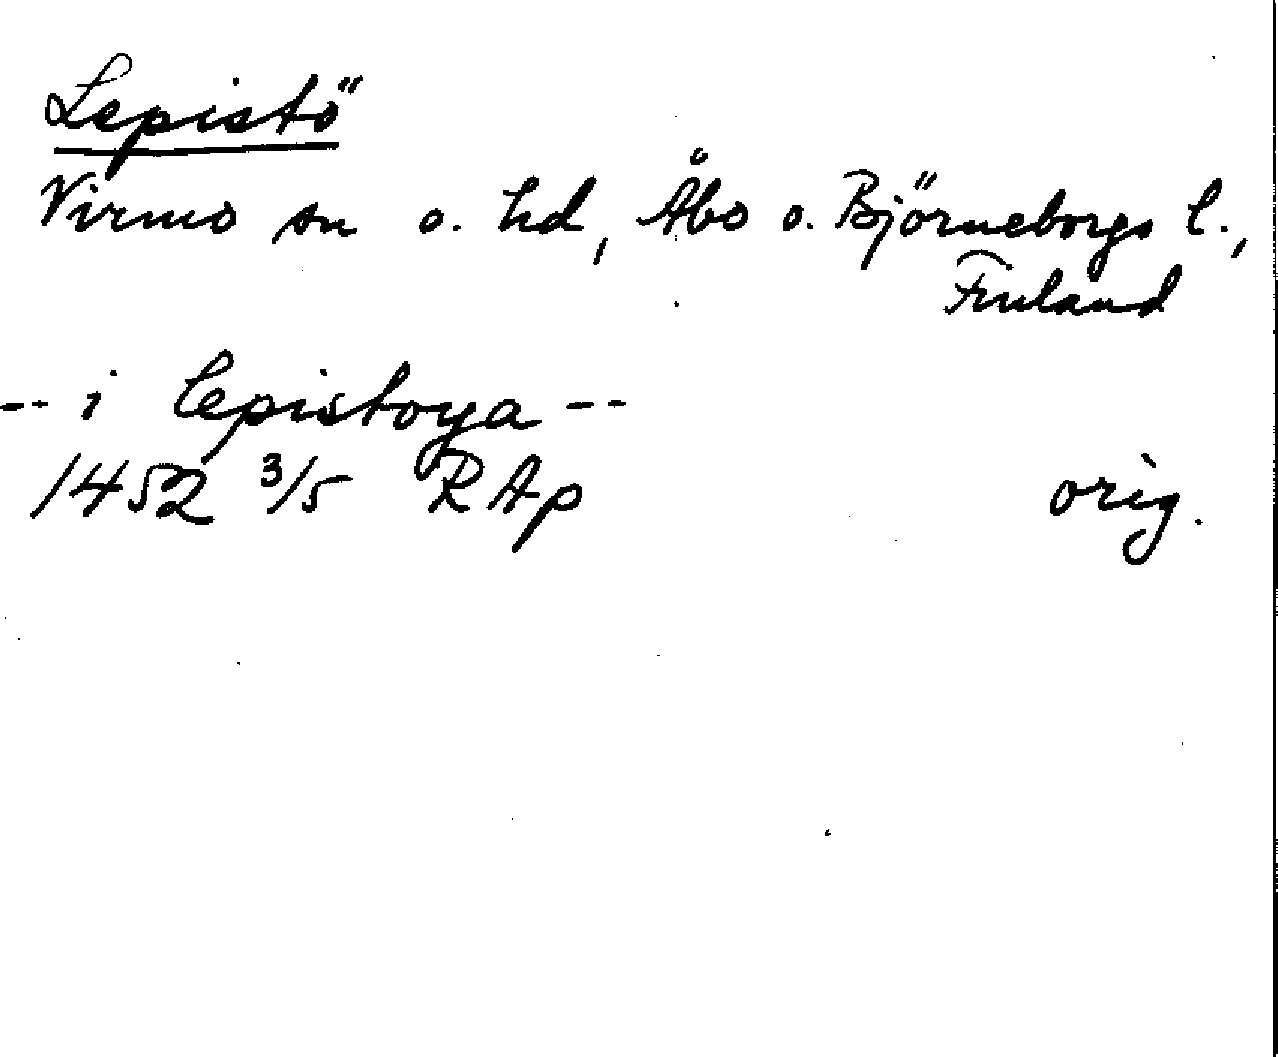 Lepistö
Virmo sn o. hd, Åbo o. Björneborgs l.,
Finland
-- i lepistoya --
1452 3/5 RAp orig.